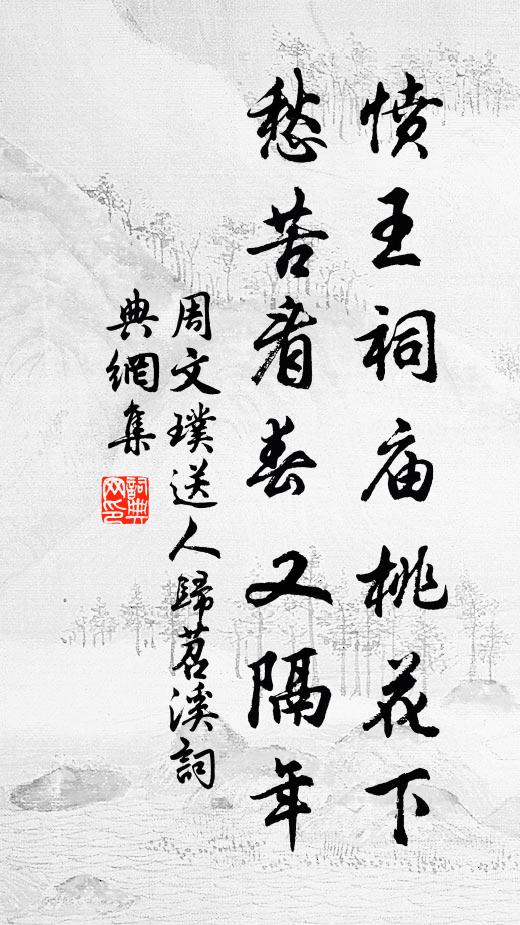 愤王祠庙桃花下
愁苦看春又隔年
周文璞送人歸苕溪詞
典網集
詞典
网印